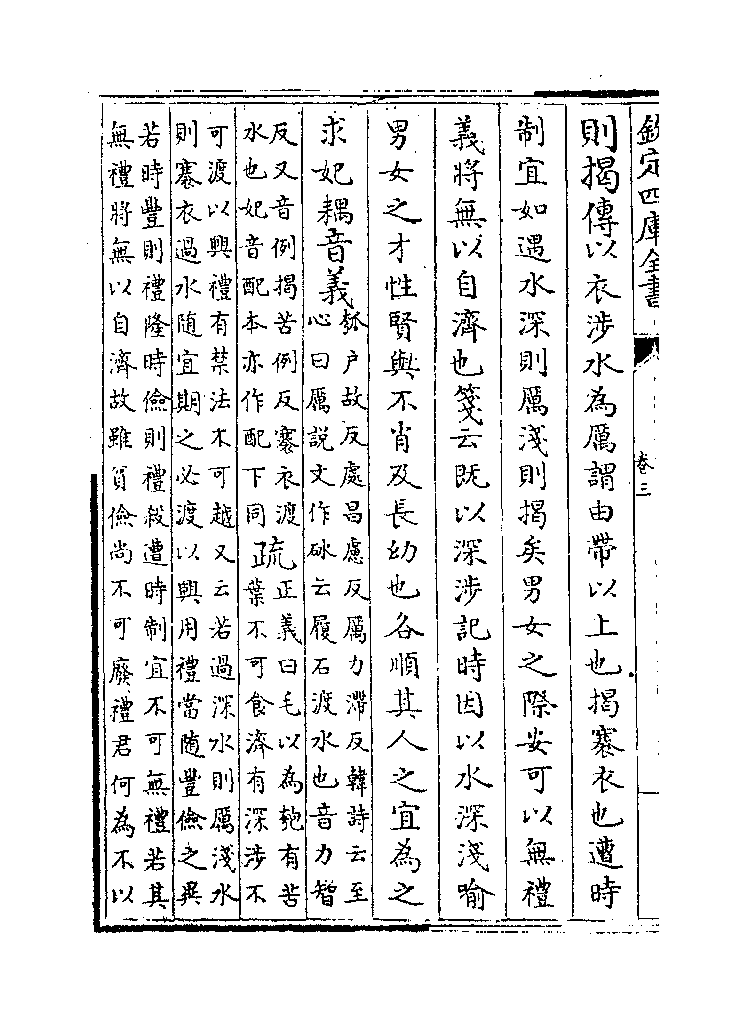 欽定四庫全書 卷三
則揭傳以衣涉水為厲謂由帶以上也揭褰衣也遭時
制宜如遇水深則厲淺則揭矣男女之際安可以無禮
義將無以自濟也箋云既以深涉記時因以水深淺喻
男女之才性賢與不肖及長幼也各順其人之宜為之
求妃耦音義
瓠户故反處昌慮反厲力滯反韓詩云至
心曰厲説文作砅云履石渡水也音力智
反又音例揭苦例反褰衣渡
水也妃音配本亦作配下同
疏
正義曰毛以為匏有苦
葉不可食濟有深涉不
可渡以興禮有禁法不可越又云若過深水則厲淺水
則褰衣過水隨宜期之必渡以興用禮當隨豐儉之異
若時豐則禮隆時儉則禮殺遭時制宜不可無禮若其
無禮將無以自濟故雖貧儉尚不可廢禮君何為不以